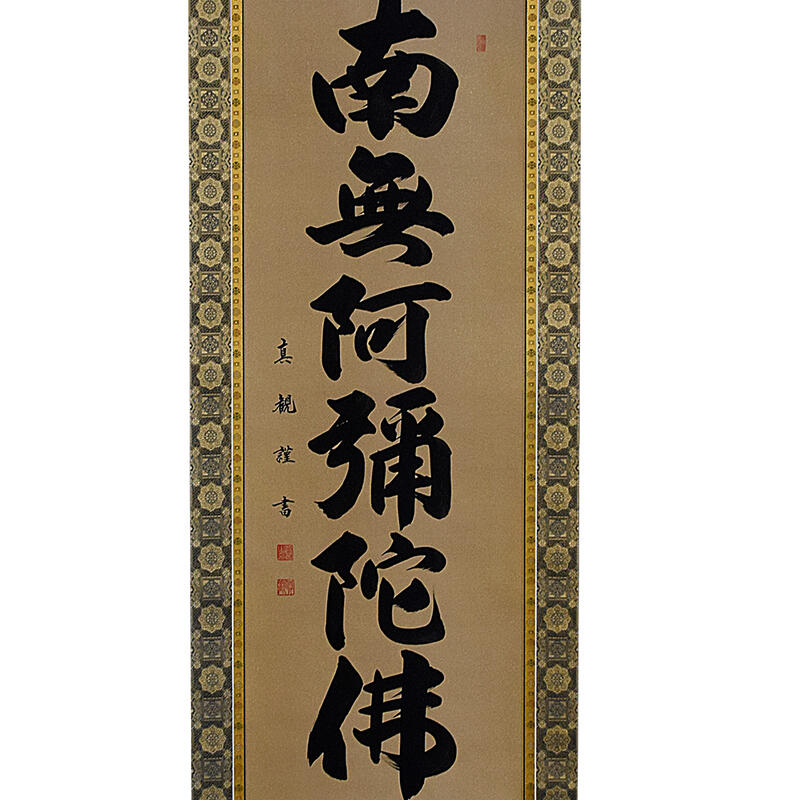 南無阿彌陀佛
真観謹書